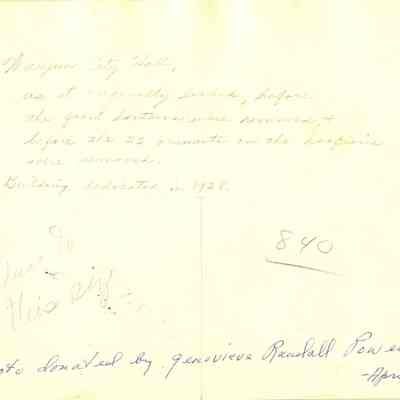 City Hall,
as it originally looked, before
the good lanterns were removed, +
before the 22 ornaments on the
were removed.
Building dedicated in 1928.
840
this size
donated by Genevieve Randall